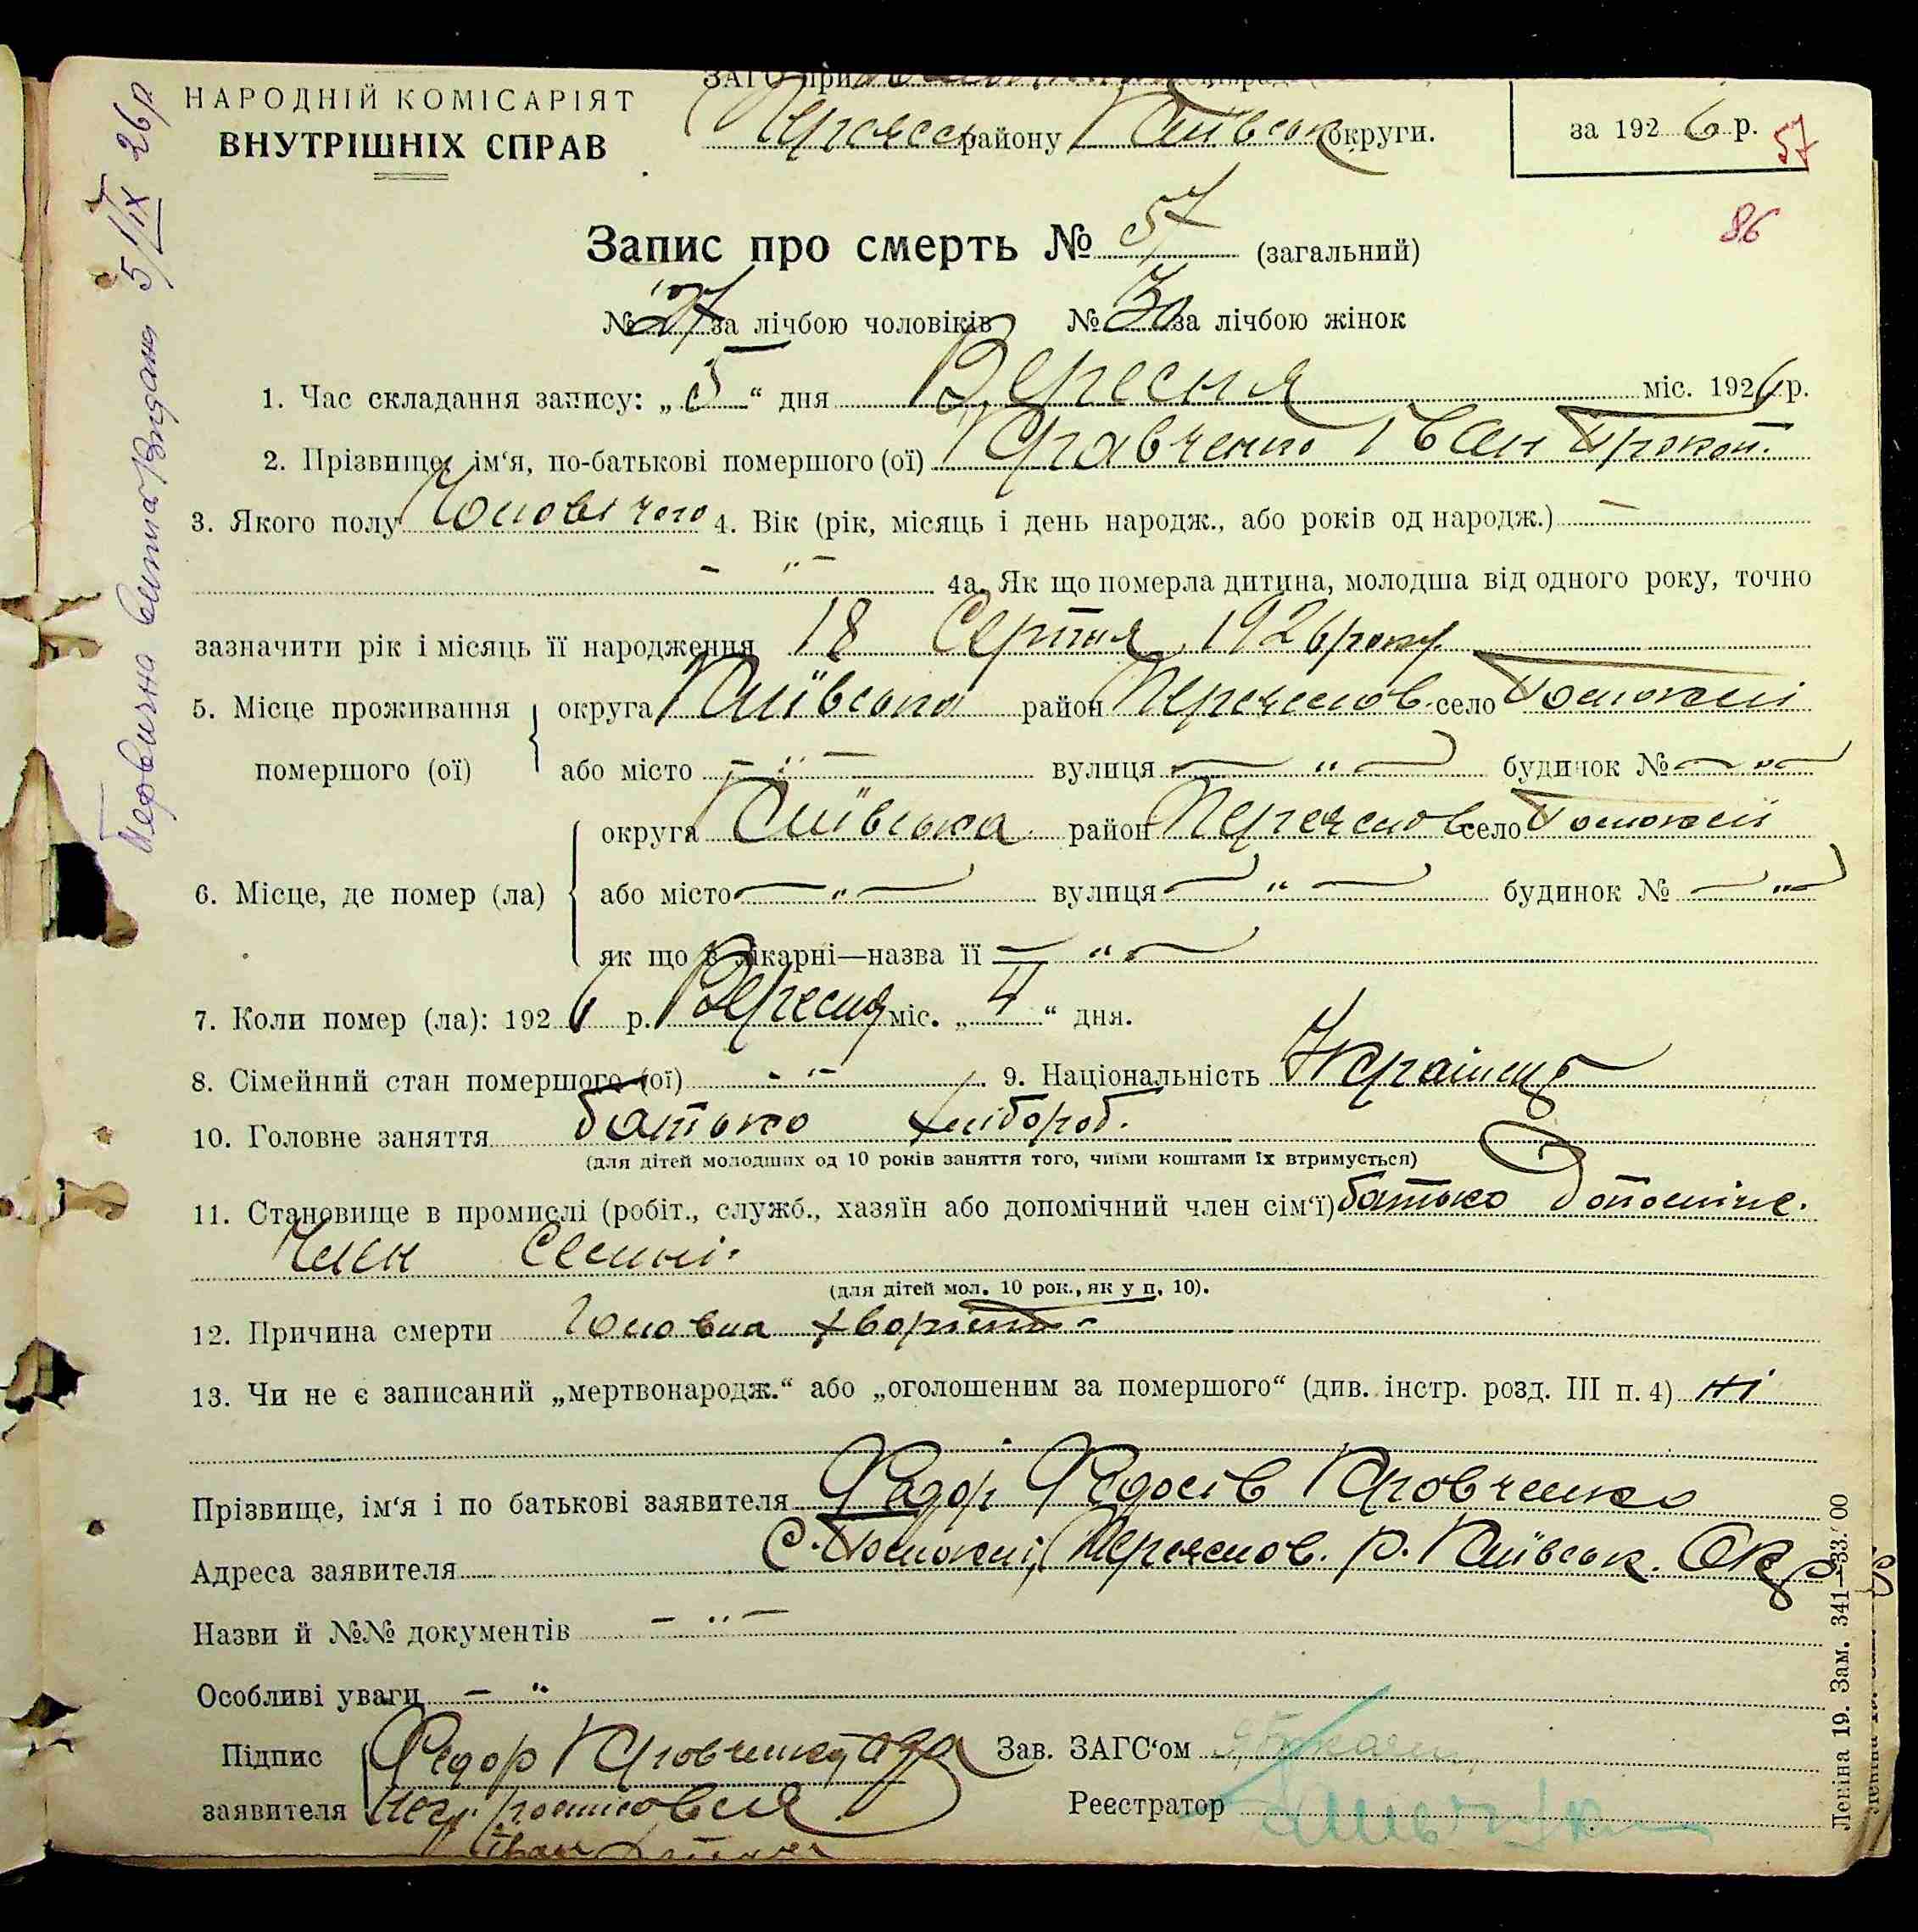 НАРОДНІЙ КОМІСАРІЯТ
ВНУТРІШНІХ СПРАВ
ЗАГС при
району Київськ округи.
за 1926 р.
57
86
Запис про смерть № 57 (загальний)
№ 27 за лічбою чоловіків № 30 за лічбою жінок
1. Час складання запису: „5“ дня Вересня міс. 1926 р.
2. Прізвище, ім‘я, по-батькові помершого (ої) Кравченко Іван Прокоп.
3. Якого полу Чоловічого 4. Вік (рік, місяць і день народж., або років од народж.) —
– " – 4а. Як що померла дитина, молодша від одного року, точно
зазначити рік і місяць її народження 18 Серпня 1926 року
5. Місце проживання помершого (ої) округа Київська район село
або місто – " – вулиця – " – будинок № – " –
6. Місце, де помер (ла) округа Київська район село
або місто – " – вулиця – " – будинок № – " –
як що в лікарні—назва її – " –
7. Коли помер (ла): 1926 р. Вересня міс. „4“ дня.
8. Сімейний стан помершого (ої) - " - 9. Національність Українець
10. Головне заняття батько хлібороб.
(для дітей молодших од 10 років заняття того, чиїми коштами їх втримується)
11. Становище в промислі (робіт., служб., хазяїн або допомічний член сім‘ї) батько допоміч.
Член Семьі.
(для дітей мол. 10 рок., як у п. 10).
12. Причина смерти хворість
13. Чи не є записаний „мертвонародж.“ або „оголошеним за помершого“ (див. інстр. розд. III п. 4) ні
Прізвище, ім‘я і по батькові заявителя Федор Федосів Кровченко
Адреса заявителя С. р. Київськ. Окр.
Назви й №№ документів – " –
Особливі уваги – "
Підпис заявителя Федор Кровченко, а за
Зав. ЗАГС‘ом
Реєстратор
Іван
видано 5/IX 26 р.
Леніна 19. Зам. 341—33.00